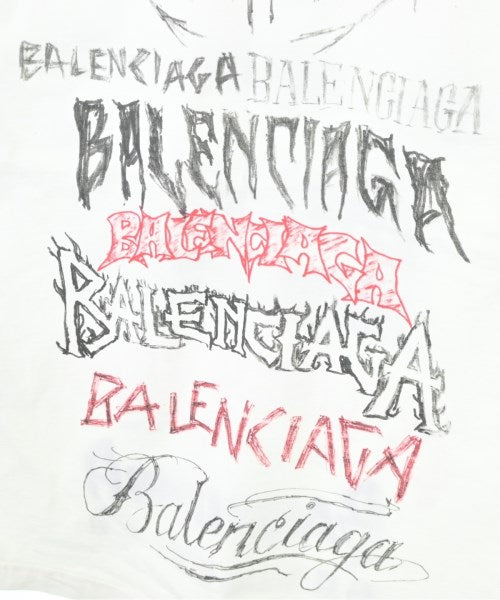 BALENCIAGA BALENCIAGA
BALENCIAGA
BALENCIAGA
BALENCIAGA
BALENCIAGA
Balenciaga